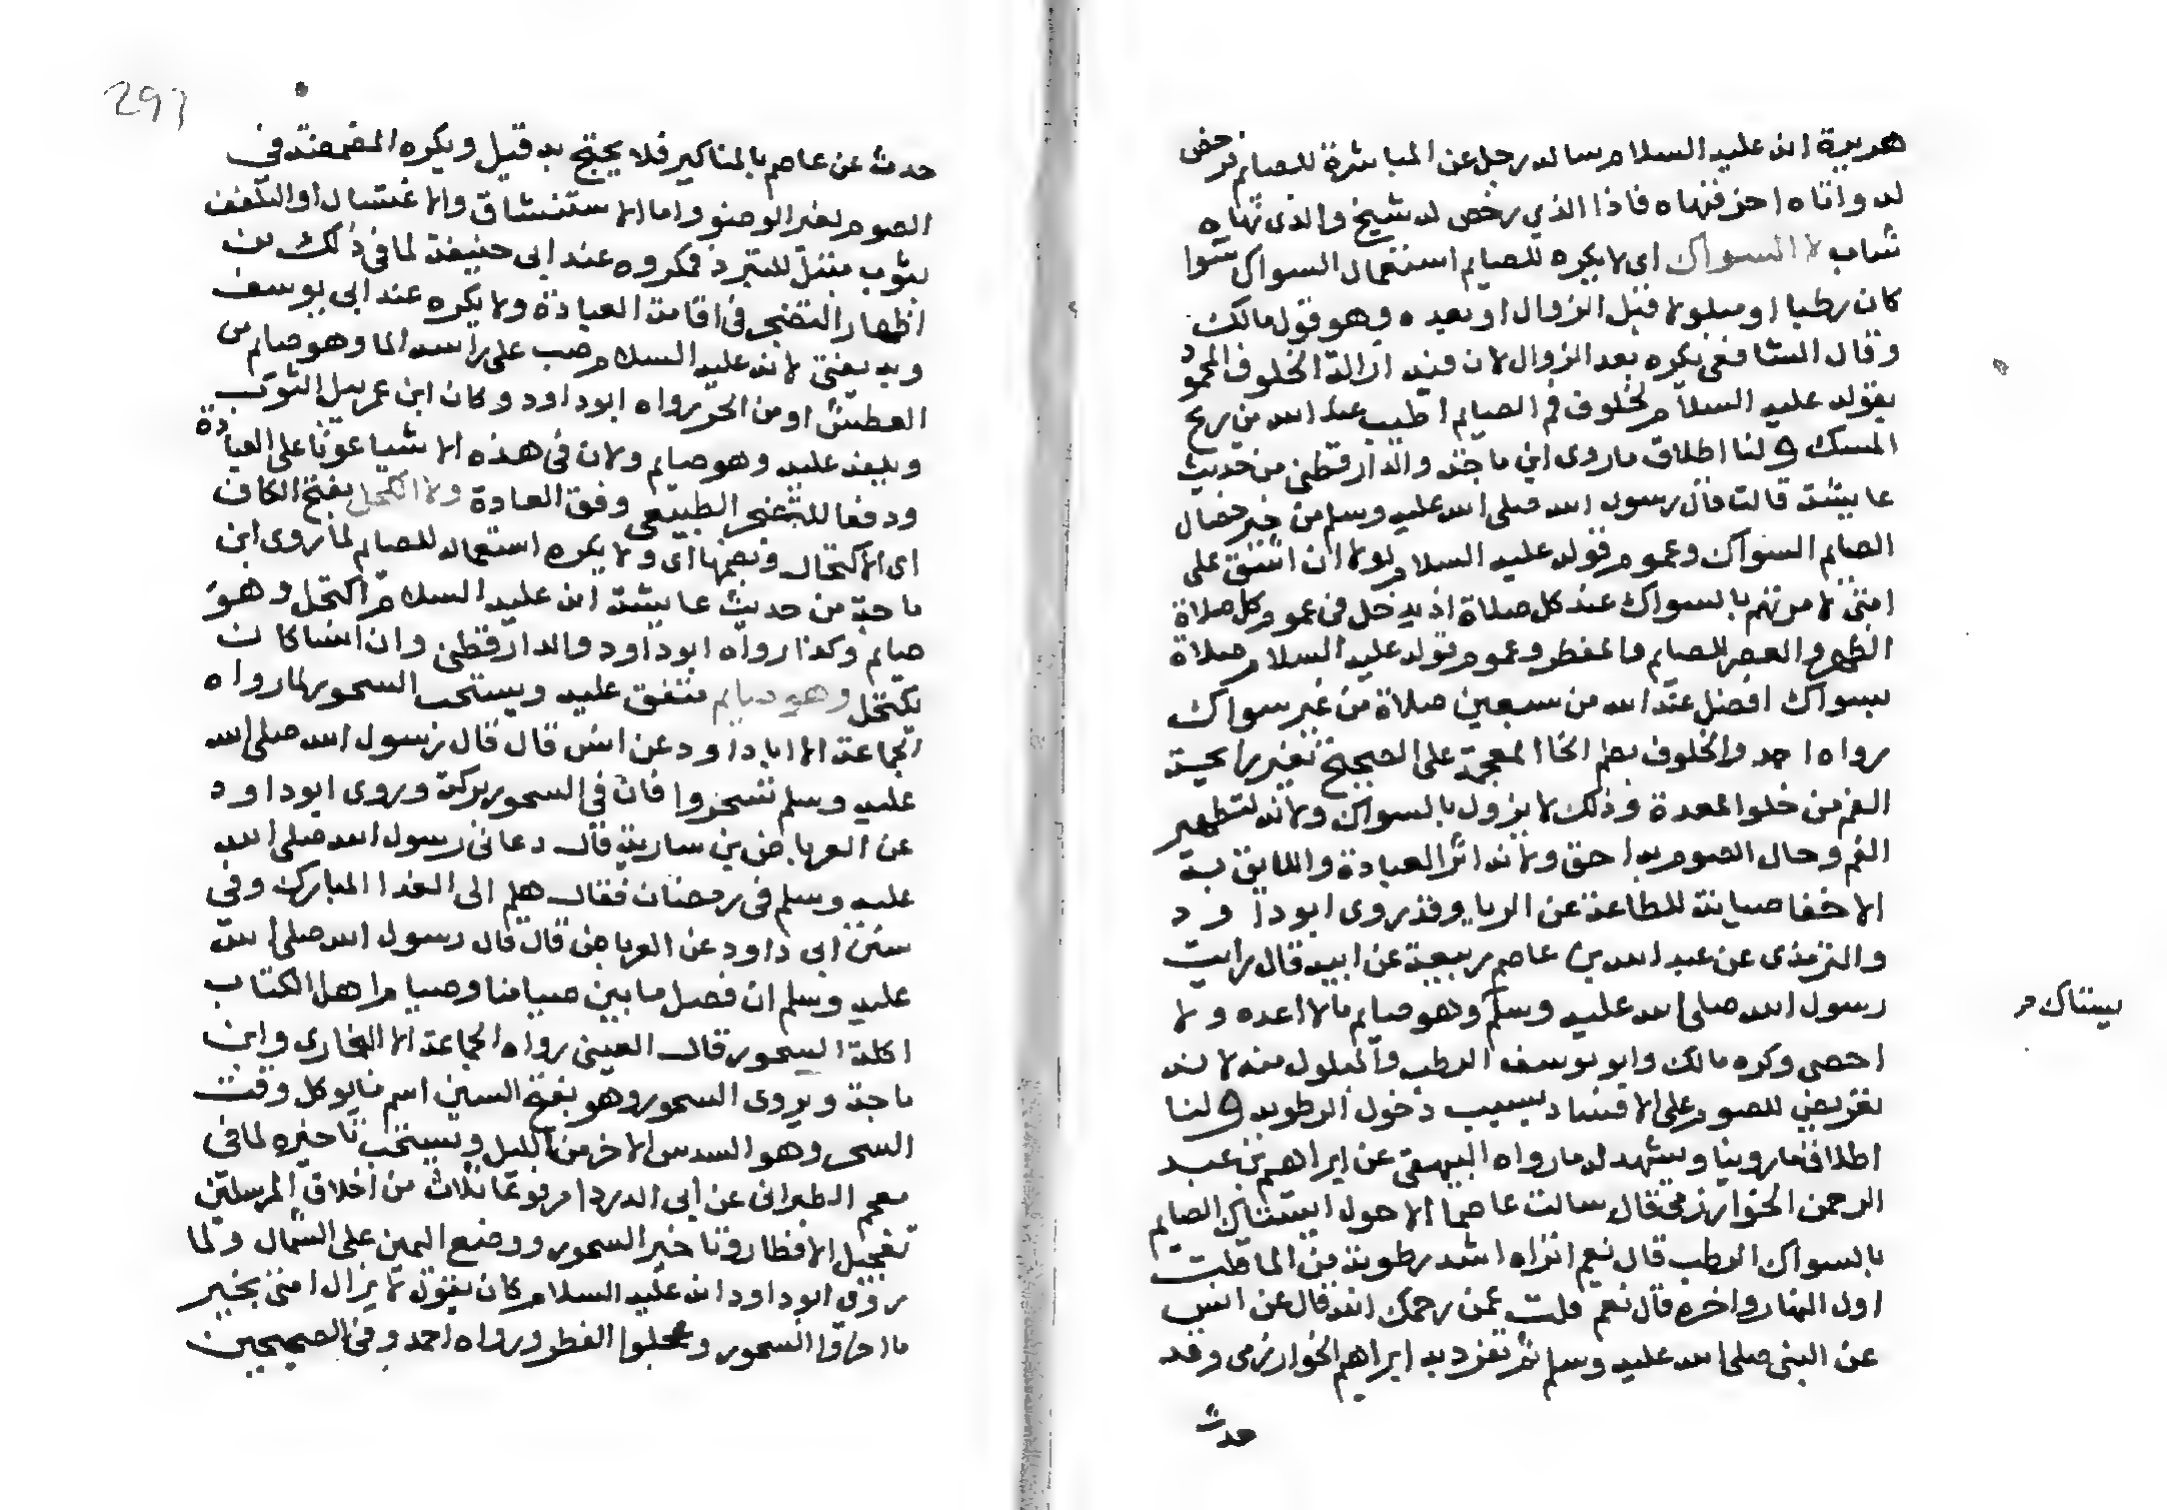 هريرة انه عليه السلام ساله رجل عن المباشرة للصايم فرخص
له واتاه اخر فنهاه فاذا الذي رخص له شيخ والذي نهاه
شاب لا السواك اى لا يكره للصايم استعمال السواك سوا
كان رطبا او مبلولا قبل الزوال او بعده وهو قول مالك
وقال الشافعى يكره بعد الزوال لان فيه ازالة الخلوف المحمود
بقوله عليه السلام لخلوف فم الصايم اطيب عند الله من ريح
المسك ولنا اطلاق ما روى ابن ماجة والدارقطنى من حديث
عايشة قالت قال رسول الله صلى الله عليه وسلم من خير خصال
الصايم السواك وعموم قوله عليه السلام لولا ان اشق على
امتى لامرتهم بالسواك عند كل صلاة اذ يدخل فى عموم كل صلاة
الظهر والعصر للصايم والمفطر وعموم قوله عليه السلام صلاة
بسواك افضل عند الله من سبعين صلاة من غير سواك
رواه احمد والخلوف بضم الخا المعجمة على الصحيح تغير رايحة
الفم من خلو المعدة وذلك لا يزول بالسواك ولانه لتطهير
الفم وحال الصوم به احق ولانه اثر العبادة واللايق به
الاخفا صيانة للطاعة عن الريا وقد روى ابو داود
والترمذى عن عبد الله بن عامر بن ربيعة عن ابيه قال رايت
رسول الله صلى الله عليه وسلم وهو صايم مالا اعده ولا
يستاك م
احصى وكره مالك وابو يوسف الرطب والمبلول منه لانه
تعريض للصوم على الافساد بسبب دخول الرطوبه ولنا
اطلاق ما روينا ويشهد له ما رواه البيهقى عن ابراهيم بن عبد
الرحمن الخوارزمى قال سالت عاصما الاحول ايستاك الصايم
بالسواك الرطب قال نعم اتراه اشد رطوبة من الما قلت
اول النهار واخره قال نعم قلت عمن رحمك الله قال عن انس
عن النبى صلى الله عليه وسلم ثم تفرد به ابراهيم الخوارزمى وقد
حدث
297
حدث عن عاصم بالمناكير فلا يحتج به قيل ويكره المضمضة في
الصوم لغير الوضو واما الاستنشاق والاغتسال او التلفف
بثوب مبتل للتبرد فمكروه عند ابى حنيفة لما فى ذلك من
اظهار التضجر فى اقامة العبادة ولا يكره عند ابى يوسف
وبه يفتى لانه عليه السلام صب على راسه الما وهو صايم من
العطش او من الحر رواه ابو داود وكان ابن عمر يبل الثوب
ويلفه عليه وهو صايم ولان فى هذه الاشيا عونا على العبادة
ودفعا للتضجر الطبيعى وفق العادة ولا الكحل بفتح الكاف
اى الاكتحال وبضمها اى ولا يكره استعماله للصايم لما روى ابن
ماجة من حديث عايشة انه عليه السلام اكتحل وهو
صايم وكذا رواه ابو داود والدارقطنى وان انسا كان
يكتحل وهو صايم متفق عليه ويستحب السحور لما رواه
الجماعة الا ابا داود عن انس قال قال رسول الله صلى الله
عليه وسلم تسحروا فان في السحور بركة وروى ابو داود
عن العرباض بن سارية قال دعانى رسول الله صلى الله
عليه وسلم فى رمضان فقال هلم الى الغدا المبارك وفى
سنن ابى داود عن العرباض قال قال رسول الله صلى الله
عليه وسلم ان فصل ما بين صيامنا وصيام اهل الكتاب
اكلة السحور قال العينى رواه الجماعة الا البخارى وابن
ماجة ويروى السحور وهو بفتح السين اسم ما يوكل وقت
السحر وهو السدس الاخر من الليل ويستحب تاخيره لما فى
معجم الطبرانى عن ابى الدردا مرفوعا ثلاث من اخلاق المرسلين
تعجيل الافطار وتاخير السحور ووضع اليمين على الشمال ولما
روى ابو داود انه عليه السلام كان يقول لا يزال امتى بخير
ما اخروا السحور وعجلوا الفطر ورواه احمد وفى الصحيحين